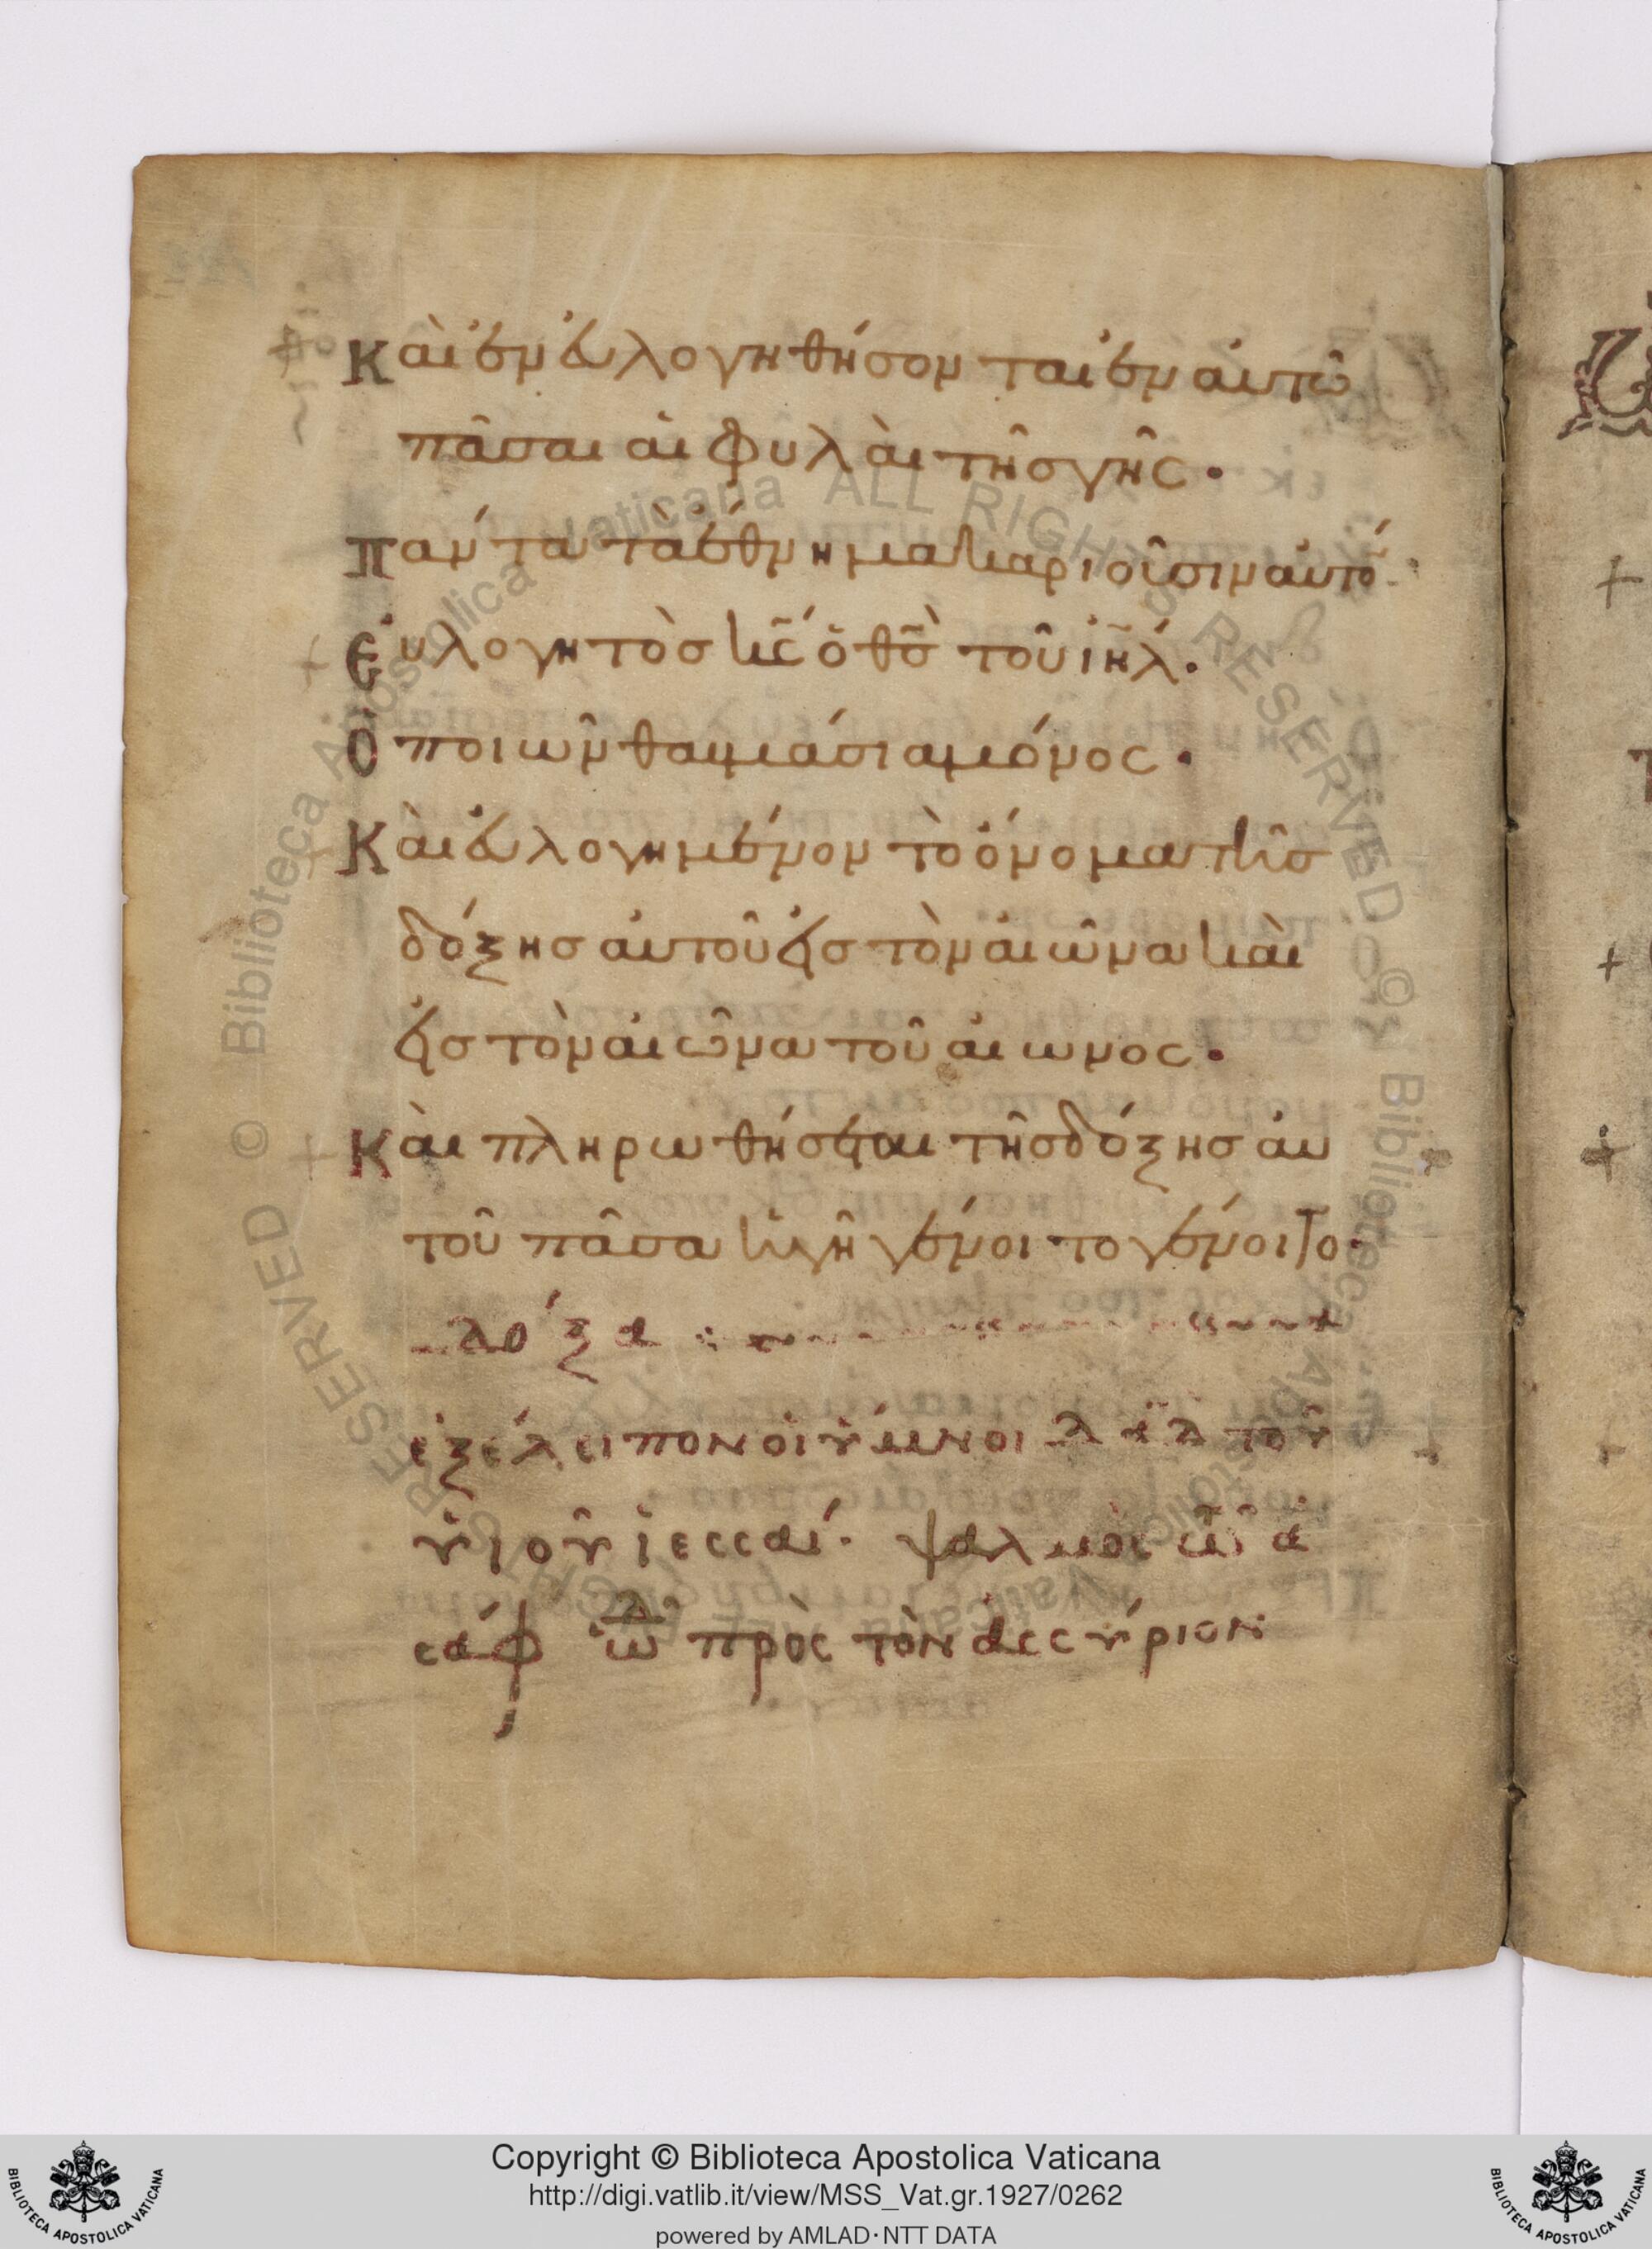 Καὶ ἐνευλογηθήσονται ἐν αὐτῶ
πᾶσαι αἱ φυλαὶ τῆς γῆς.
Πάντα τὰ ἔθνη μακαριοῦσιν αὐτό.
Εὐλογητὸς κ̅ς̅ ὁ θ̅ς̅ τοῦ ι̅η̅λ̅.
Ὁ ποιῶν θαυμάσια μόνος.
Καὶ εὐλογημένον τὸ ὄνομα τῆς
δόξης αὐτοῦ εἰς τὸν αἰῶνα καὶ
εἰς τὸν αἰῶνα τοῦ αἰωνος.
Καὶ πληρωθήσεται τῆς δόξης αὐ
τοῦ πᾶσα ἡ γῆ γένοιτο γένοιτο.
δόξα
ἐξέλειπον οἱ ὕμνοι δα̅δ̅ τοῦ
υἱοῦ ἰεσσαί. ψαλμὸς
πρὸς τὸν ἀσσύριον
Copyright © Biblioteca Apostolica Vaticana
http://digi.vatlib.it/view/MSS_Vat.gr.1927/0262
powered by AMLAD·NTT DATA
BIBLIOTECA APOSTOLICA VATICANA
BIBLIOTECA APOSTOLICA VATICANA